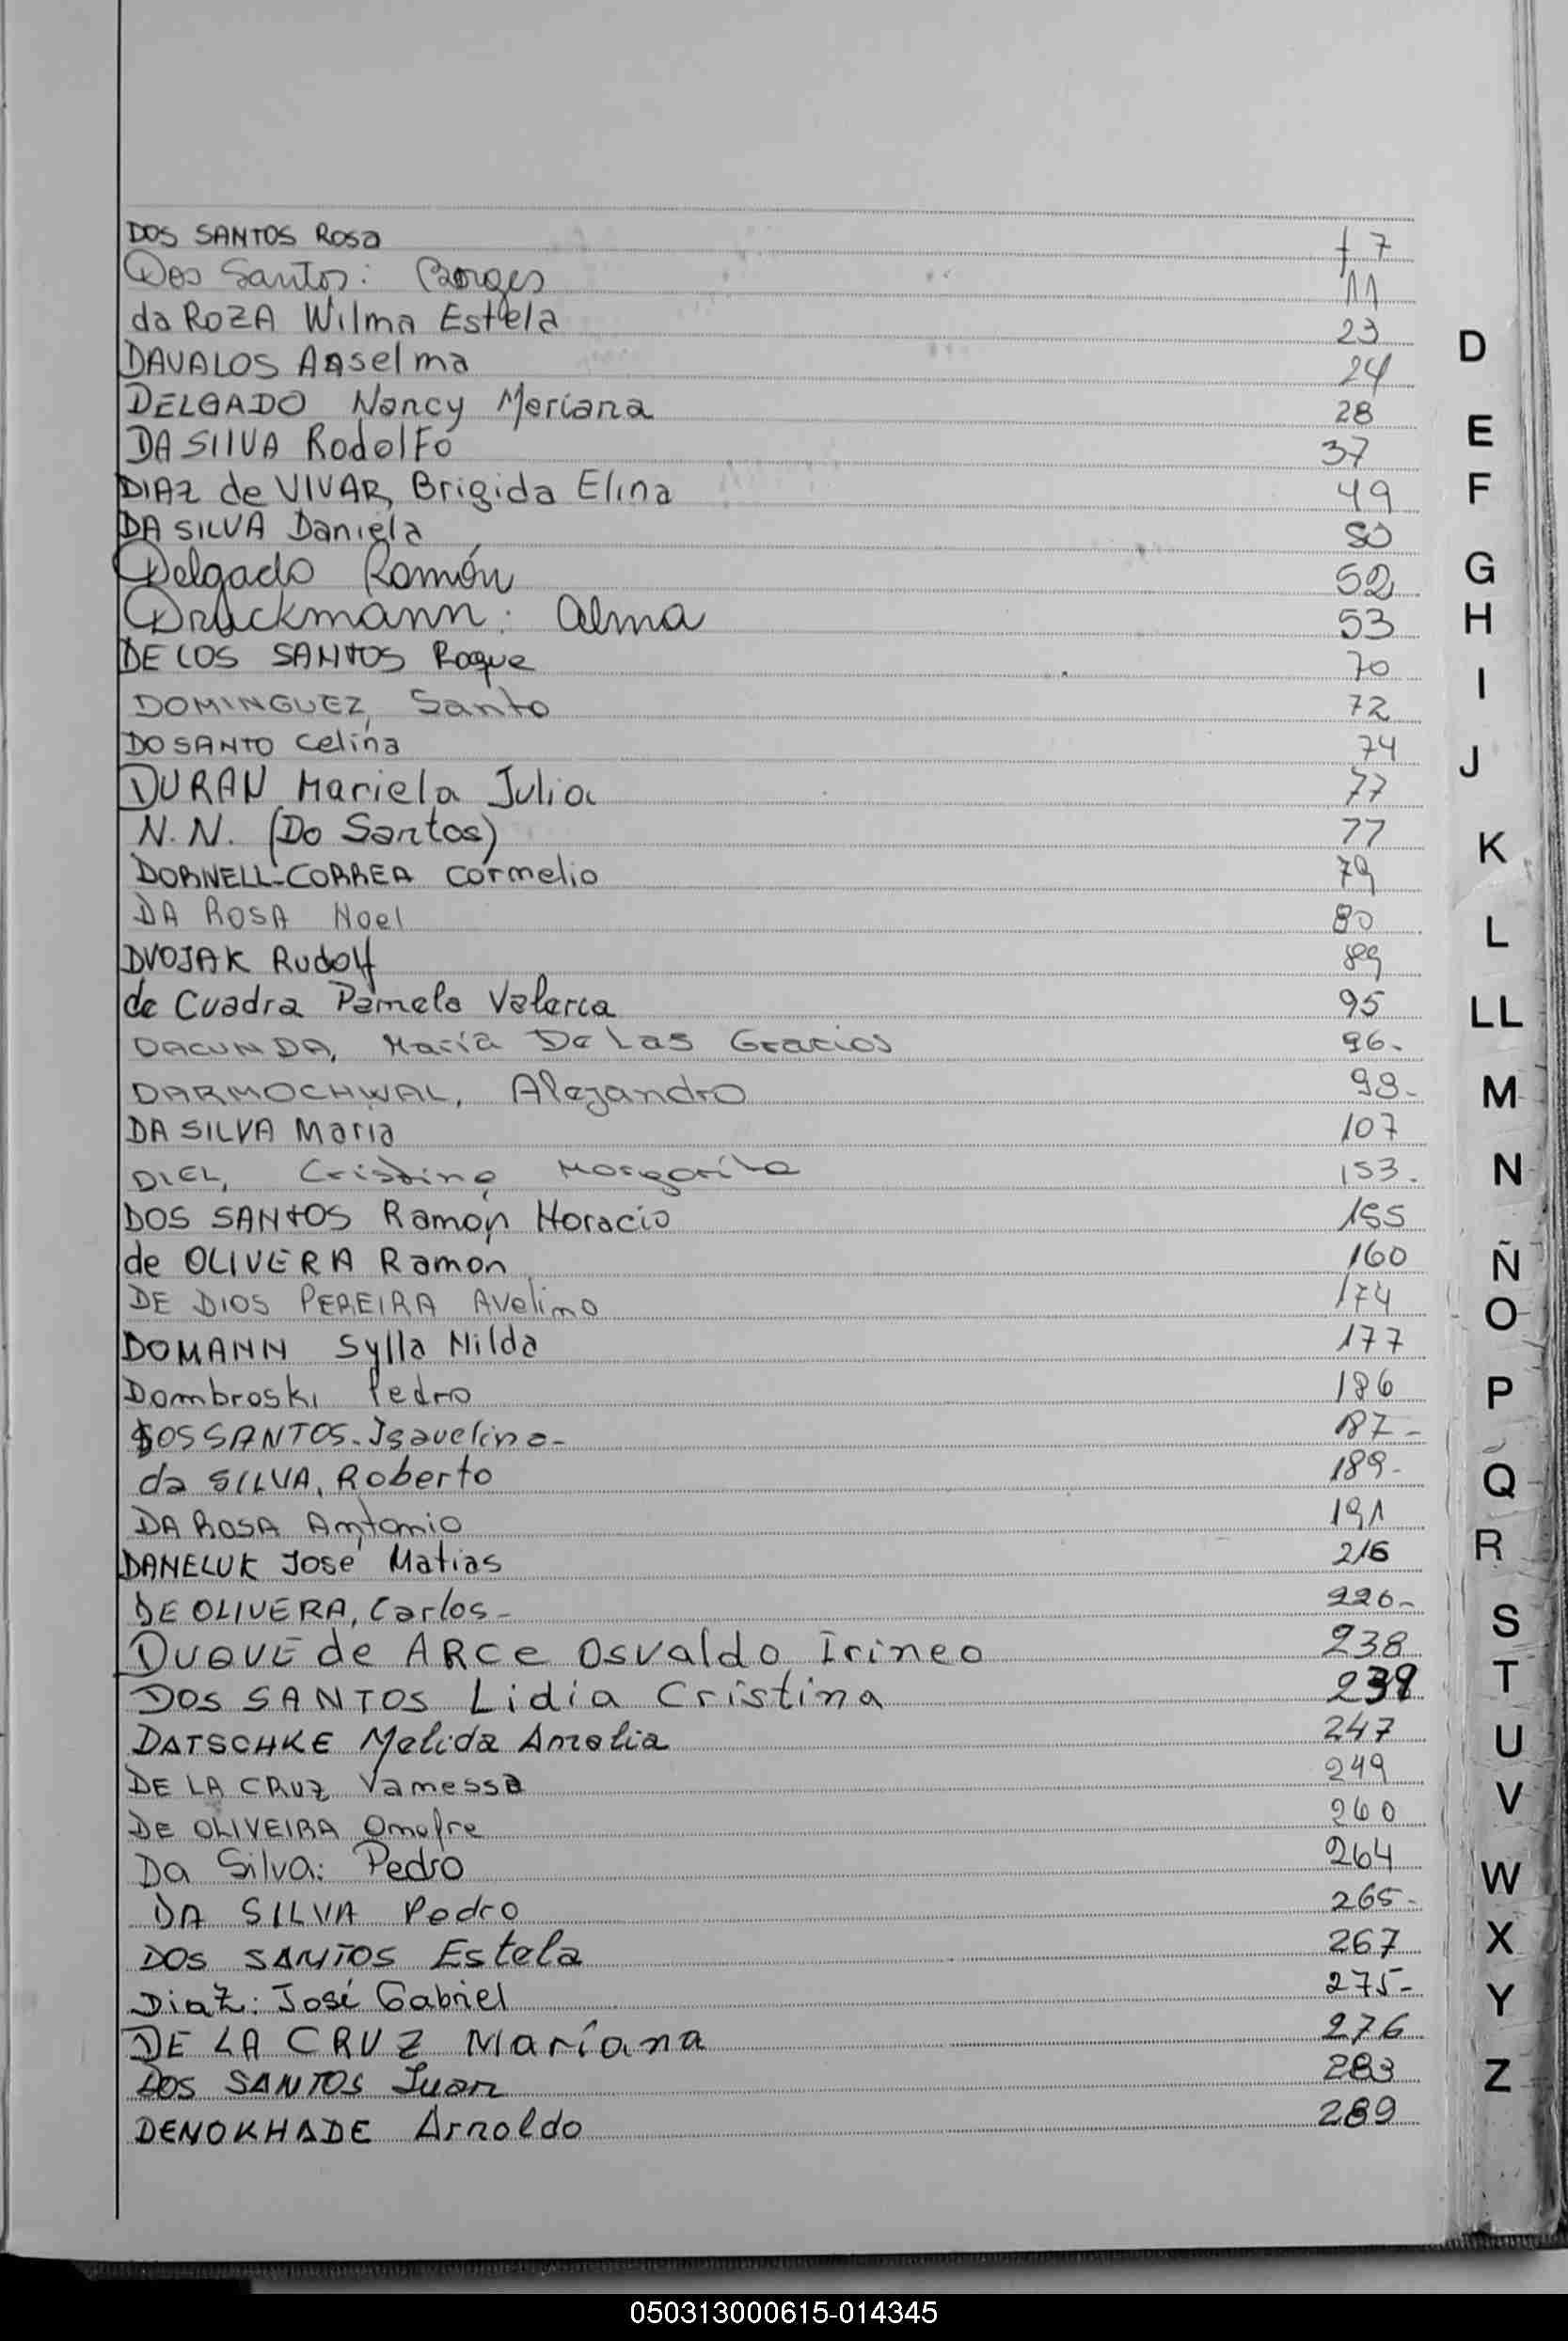 DOS SANTOS Rosa f 7
Dos Santos: Borges 11
da ROZA Wilma Estela 23
DAVALOS Anselma 24
DELGADO Nancy Meriana 28
DA SILVA Rodolfo 37
DIAZ de VIVAR, Brigida Elina 49
DA SILVA Daniela 50
Delgado Ramón 52
Druckmann: Alma 53
DE LOS SANTOS Roque 70
DOMINGUEZ, Santo 72
DO SANTO Celina 74
DURAN Mariela Julia 77
N.N. (Do Santos) 77
DORNELL-CORREA Cormelio 79
DA ROSA Noel 80
DVOJAK Rudolf 89
de Cuadra Pamela Valeria 95
DACUNDA, María De Las Gracias 96-
DARMOCHWAL, Alejandro 98-
DA SILVA Maria 107
DIEL, Cristina Margarita 153-
DOS SANTOS Ramón Horacio 155
de OLIVERA Ramon 160
DE DIOS PEREIRA Avelino 174
DOMANN Sylla Nilda 177
Dombroski Pedro 186
DOS SANTOS- Isavelino- 187-
da SILVA, Roberto 189-
DA ROSA Antonio 191
DANELUK José Matias 216
DE OLIVERA, Carlos- 226-
DUQUE de ARCe Osvaldo Irineo 238
DOS SANTOS Lidia Cristina 239
DATSCHKE Melida Amalia 247
DE LA CRUZ Vanessa 249
DE OLIVEIRA Onofre 260
Da Silva: Pedro 264
DA SILVA Pedro 265-
DOS SANTOS Estela 267
Diaz: José Gabriel 275-
DE LA CRUZ Mariana 276
DOS SANTOS Juan 283
DENOKHADE Arnoldo 289
D
E
F
G
H
I
J
K
L
LL
M
N
Ñ
O
P
Q
R
S
T
U
V
W
X
Y
Z
050313000615-014345